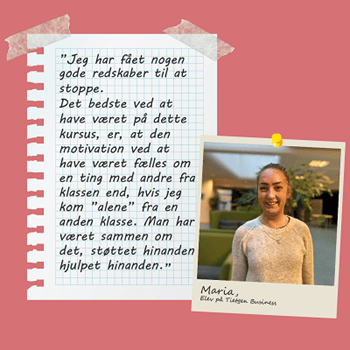 "Jeg har fået nogen
gode redskaber til at
stoppe.
Det bedste ved at
have været på dette
kursus, er, at den
motivation ved at
have været fælles om
en ting med andre fra
klassen end, hvis jeg
kom "alene" fra en
anden klasse. Man har
været sammen om
det, støttet hinanden
hjulpet hinanden."
Maria,
Elev på Tietgen Business